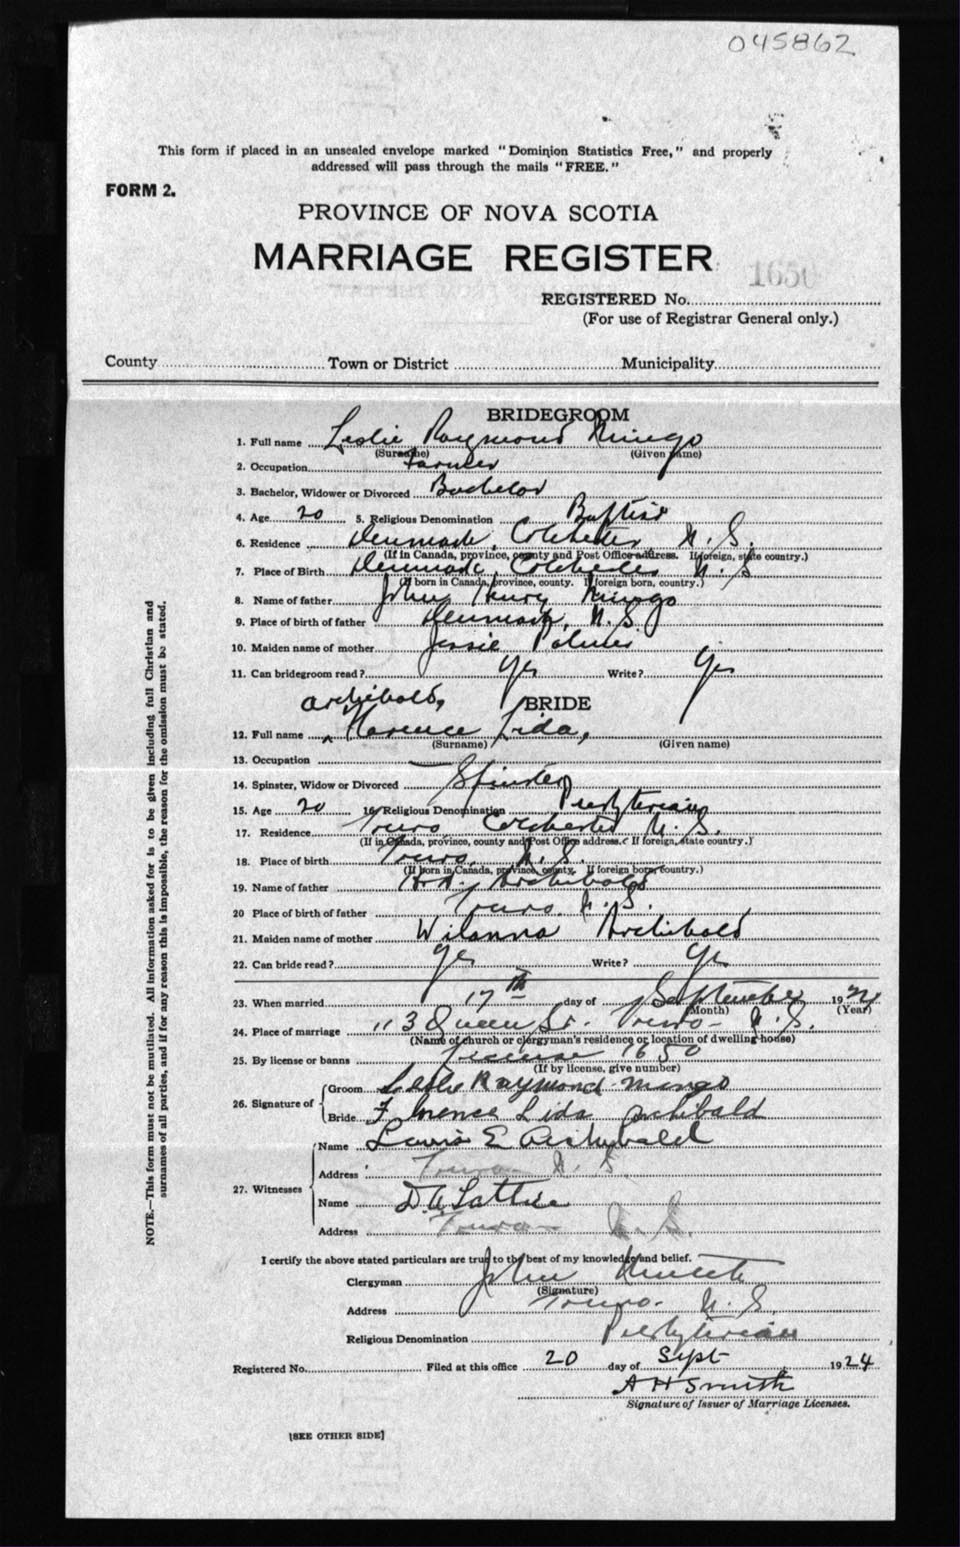 045862
This form if placed in an unsealed envelope marked "Dominion Statistics Free," and properly
addressed will pass through the mails "FREE."
FORM 2.
PROVINCE OF NOVA SCOTIA
MARRIAGE REGISTER
1650
REGISTERED No.
(For use of Registrar General only.)
County Town or District Municipality
BRIDEGROOM
1. Full name Leslie Raymond Mingo
(Surname) (Given name)
2. Occupation Farmer
3. Bachelor, Widower or Divorced Bachelor
4. Age 20 5. Religious Denomination Baptist
6. Residence Denmark, Colchester N. S.
(If in Canada, province, county and Post Office address. If foreign, state country.)
7. Place of Birth Denmark, Colchester N. S
(If born in Canada, province, county. If foreign born, country.)
8. Name of father John Henry Mingo
9. Place of birth of father Denmark, N. S
10. Maiden name of mother Jessie
11. Can bridegroom read? Yes Write? Yes
BRIDE
Archibald,
12. Full name ^ Florence Lida,
(Surname) (Given name)
13. Occupation —
14. Spinster, Widow or Divorced Spinster
15. Age 20 16. Religious Denomination Presbyterian
17. Residence Truro Colchester N. S.
(If in Canada, province, county and Post Office address. If foreign, state country.)
18. Place of birth Truro, N. S.
(If born in Canada, province, county. If foreign born, country.)
19. Name of father Archibald
20 Place of birth of father Truro. N. S.
21. Maiden name of mother Wilanna Archibald
22. Can bride read? Yes Write? Yes
23. When married 17th day of September 1924
(Month) (Year)
24. Place of marriage 113 Queen St. Truro - N. S.
(Name of church or clergyman's residence or location of dwelling house)
25. By license or banns License 1650
(If by license, give number)
26. Signature of
Groom Leslie Raymond Mingo
Bride Florence Lida Archibald
27. Witnesses
Name Lewis E Archibald
Address Truro N. S.
Name D. A. Lattie
Address Truro N. S.
I certify the above stated particulars are true to the best of my knowledge and belief.
Clergyman John
(Signature)
Address Truro. N. S.
Religious Denomination Presbyterian
Registered No. Filed at this office 20 day of Sept 1924
A H Smith
Signature of Issuer of Marriage Licenses.
[SEE OTHER SIDE]
NOTE.—This form must not be mutilated. All information asked for is to be given including full Christian and
surnames of all parties, and if for any reason this is impossible, the reason for the omission must be stated.